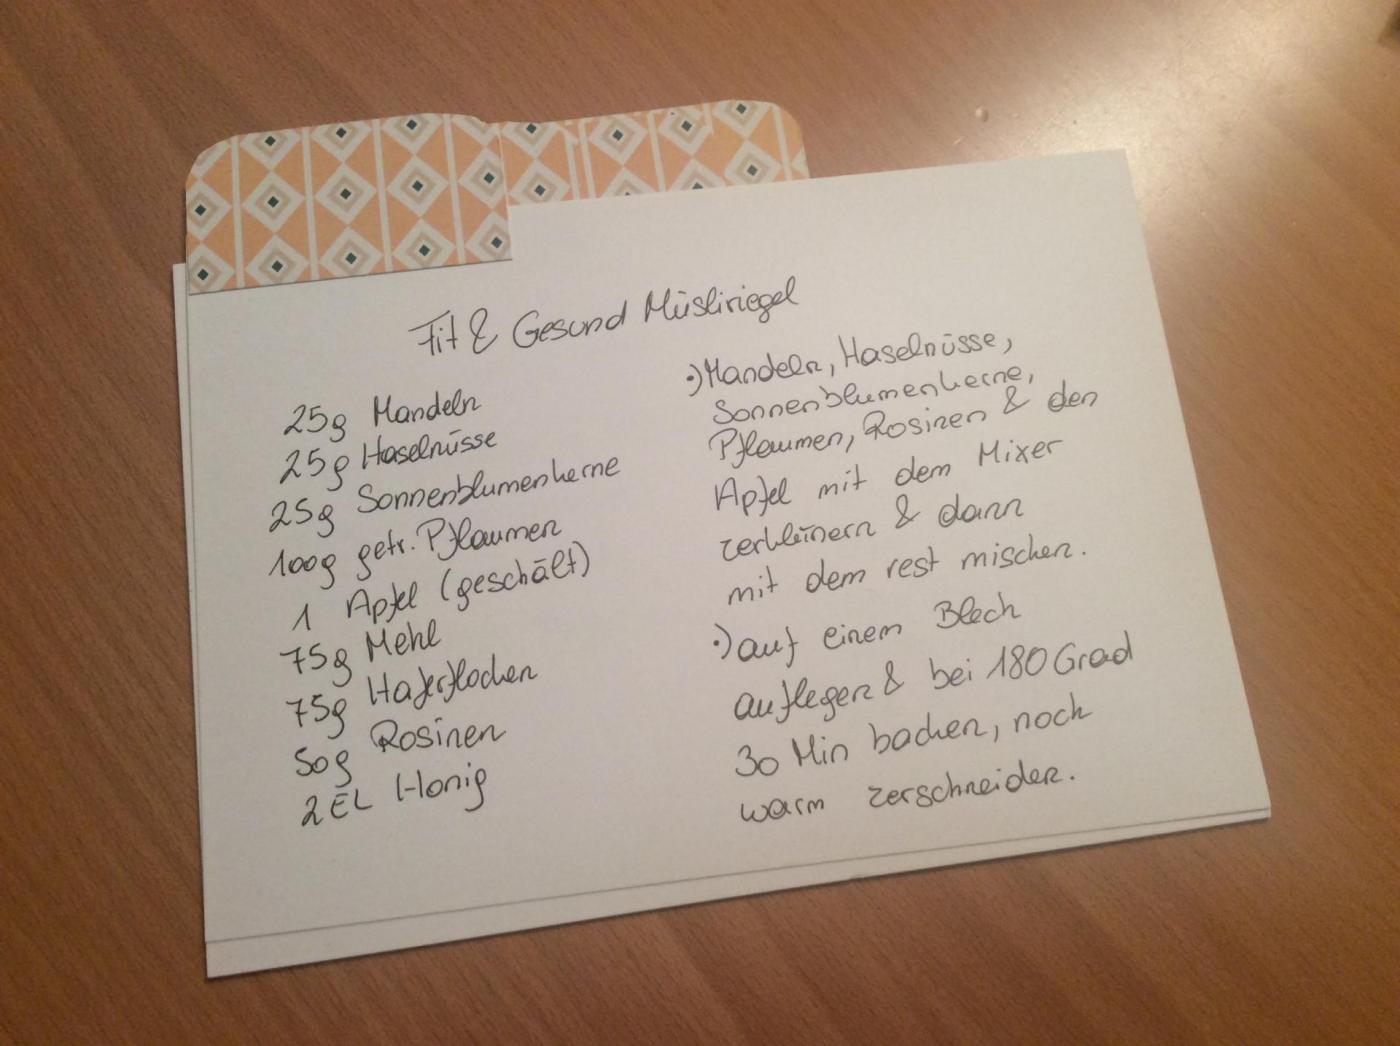 Fit & Gesund Müsliriegel
25g Mandeln
25g Haselnüsse
25g Sonnenblumenkerne
100g getr. Pflaumen
1 Apfel (geschält)
75g Mehl
75g Haferflocken
50g Rosinen
2 EL Honig
•) Mandeln, Haselnüsse,
Sonnenblumenkerne,
Pflaumen, Rosinen & den
Apfel mit dem Mixer
zerkleinern & dann
mit dem rest mischen.
•) auf einem Blech
auflegen & bei 180 Grad
30 Min backen, noch
warm zerschneiden.